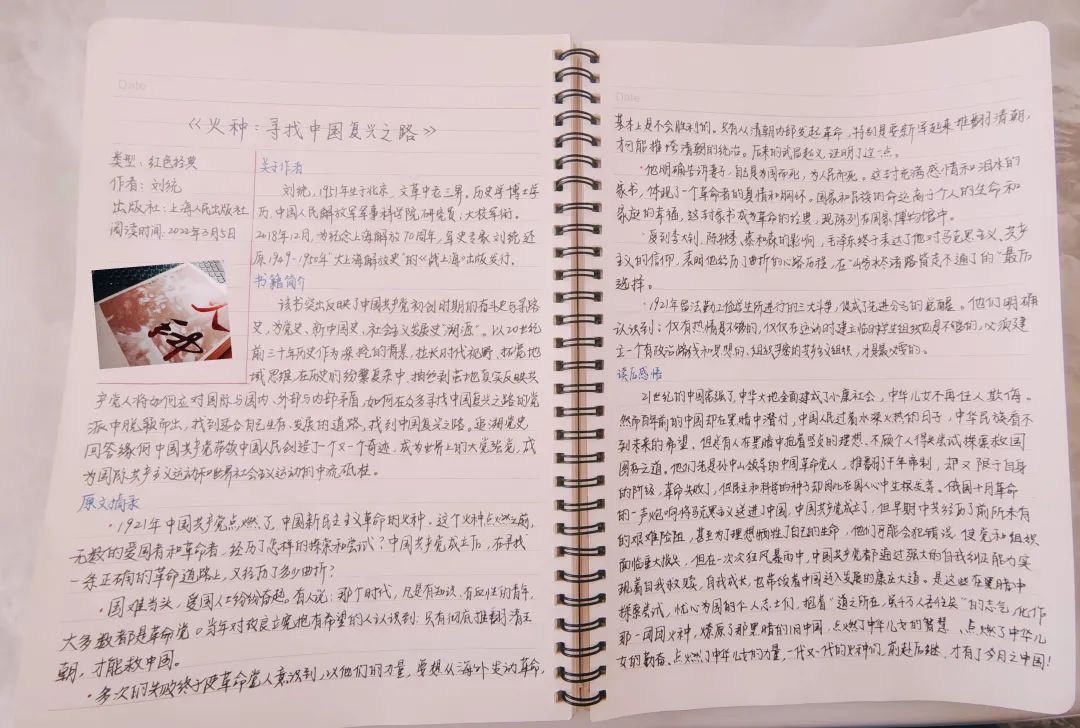 Date
《火种：寻找中国复兴之路》
类型：红色经典
作者：刘统
出版社：上海人民出版社
阅读时间：2022年3月5日
关于作者
刘统，1951年生于北京，文革中老三界。历史学博士学
历，中国人民解放军军事科学院，研究员，大校军衔。
2018年12月，为纪念上海解放70周年，军史专家刘统还
原1949-1950年"大上海解放史"的《战上海》出版发行。
书籍简介
该书突出反映了中国共产党初创时期的奋斗史与寻路
史，为党史、新中国史、社会主义发展史"溯源"。以20世纪
前三十年历史作为深挖的背景，拉长时代视野、拓展地
域思维，在历史的纷繁复杂中，抽丝剥茧地真实反映共
产党人将如何应对国际与国内、外部与内部矛盾，如何在众多寻找中国复兴之路的党
派中脱颖而出，找到适合自己生存、发展的道路，找到中国复兴之路。追溯党史，
回答缘何中国共产党带领中国人民创造了一个又一个奇迹，成为世界上的大党强党，成
为国际共产主义运动和世界社会主义运动的中流砥柱。
原文摘录
·1921年中国共产党点燃了，中国新民主主义革命的火种。这个火种点燃之前，
无数的爱国者和革命者，经历了怎样的探索和尝试？中国共产党成立后，在寻找
一条正确的革命道路上，又经历了多少曲折？
·国难当头，爱国人士纷纷奋起。有人说：那个时代，凡是有知识、有血性的青年，
大多数都是革命党。当年对改良立宪抱有希望的人认识到：只有彻底推翻清王
朝，才能救中国。
·多次的失败终于使革命党人意识到，以他们的力量，要想从海外发动革命，
Date
基本上是不会胜利的。只有从清朝内部发起革命，特别是要新军起来推翻清朝，
才能推垮清朝的统治。后来的武昌起义证明了这一点。
·他明确告诉妻子，自己是为国而死，为人民而死。这封充满感情和泪水的
家书，体现了一个革命者的真情和胸怀。国家和民族的命运高于个人的生命和
家庭的幸福，这封家书成为革命的经典，现陈列在国家博物馆中。
·受到李大钊、陈独秀、蔡和森的影响，毛泽东终于表达了他对马克思主义、共产
主义的信仰，表明他经历了曲折的心路历程，在"山穷水尽诸路皆走不通了的"最后
选择。
·1921年留法勤工俭学生所进行的三大斗争，促成了先进分子的觉醒。他们明确
认识到：仅有热情是不够的，仅仅在运动时建立临时学生组织也是不够的，必须建
立一个有政治路线和思想的、组织严密的共产主义组织，才是最必要的。
读后感悟
21世纪的中国富强了，中华大地全面建成了小康社会，中华儿女不再任人欺侮。
然而百年前的中国却在黑暗中潜行，中国人民过着水深火热的日子，中华民族看不
到未来的希望。但是有人在黑暗中抱着坚贞的理想，不顾个人得失尝试探索救国
图存之道。他们先是孙中山领导的中国革命党人，推翻了千年帝制，却又限于自身
的阶级，革命失败了，但民主和科学的种子却因此在国人心中生根发芽。俄国十月革命
的一声炮响将马克思主义送进了中国，中国共产党成立了，但早期中共经历了前所未有
的艰难险阻，甚至为了理想牺牲了自己的生命，他们可能会犯错误，使党和组织
面临重大损失，但在一次次狂风暴雨中，中国共产党都通过强大的自我纠正能力实
现着自我救赎，自我成长，也带领着中国迈入发展的康庄大道。是这些在黑暗中
探索尝试，忧心为国的个人志士们，抱着"道之所在，虽千万人吾往矣"的志气，化作
那一团团火种，燎原了那黑暗的旧中国，点燃了中华儿女的智慧、点燃了中华儿
女的勤奋、点燃了中华儿女的力量，一代又一代的火种们，前赴后继，才有了今日之中国！